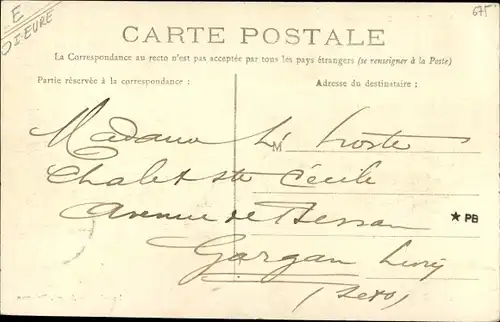 E
D I-EURE
675
CARTE POSTALE
La Correspondance au recto n'est pas acceptée par tous les pays étrangers (se renseigner à la Poste)
Partie réservée à la correspondance :
Adresse du destinataire :
Madame
M
Chalet Ste Cécile
Avenue de
★ PB
Gargan Livry